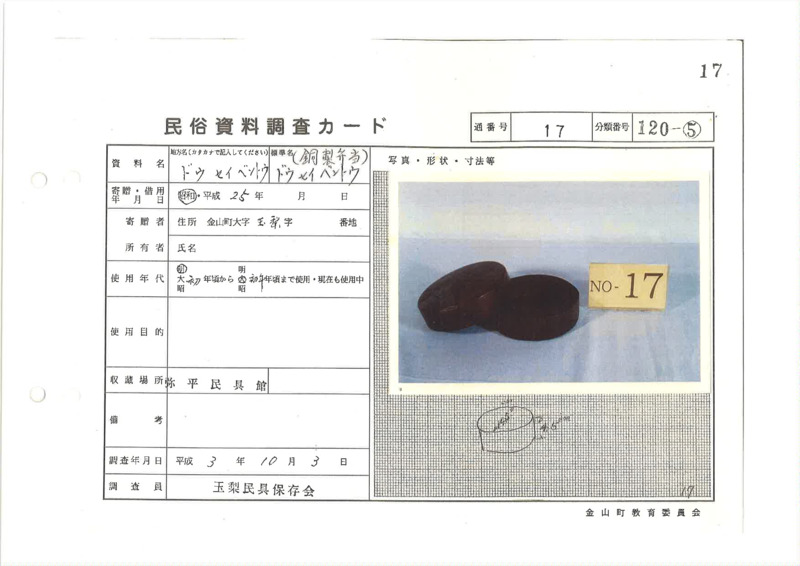 17
民俗資料調査カード
通番号 17 分類番号 120-⑤
資料名
地方名(カタカナで記入してください) 標準名(銅製弁当)
ドウセイベントウ ドウセイベントウ
写真・形状・寸法等
寄贈・借用年月日 昭和・平成 25年 月 日
寄贈者 住所 金山町大字玉梨字 番地
所有者 氏名
使用年代
明 大 昭 初年頃から 明 大 昭 年頃まで使用・現在も使用中
NO-17
使用目的
収蔵場所 弥平民具館
備考
調査年月日 平成 3年 10月 3日
調査員 玉梨民具保存会
17
金山町教育委員会